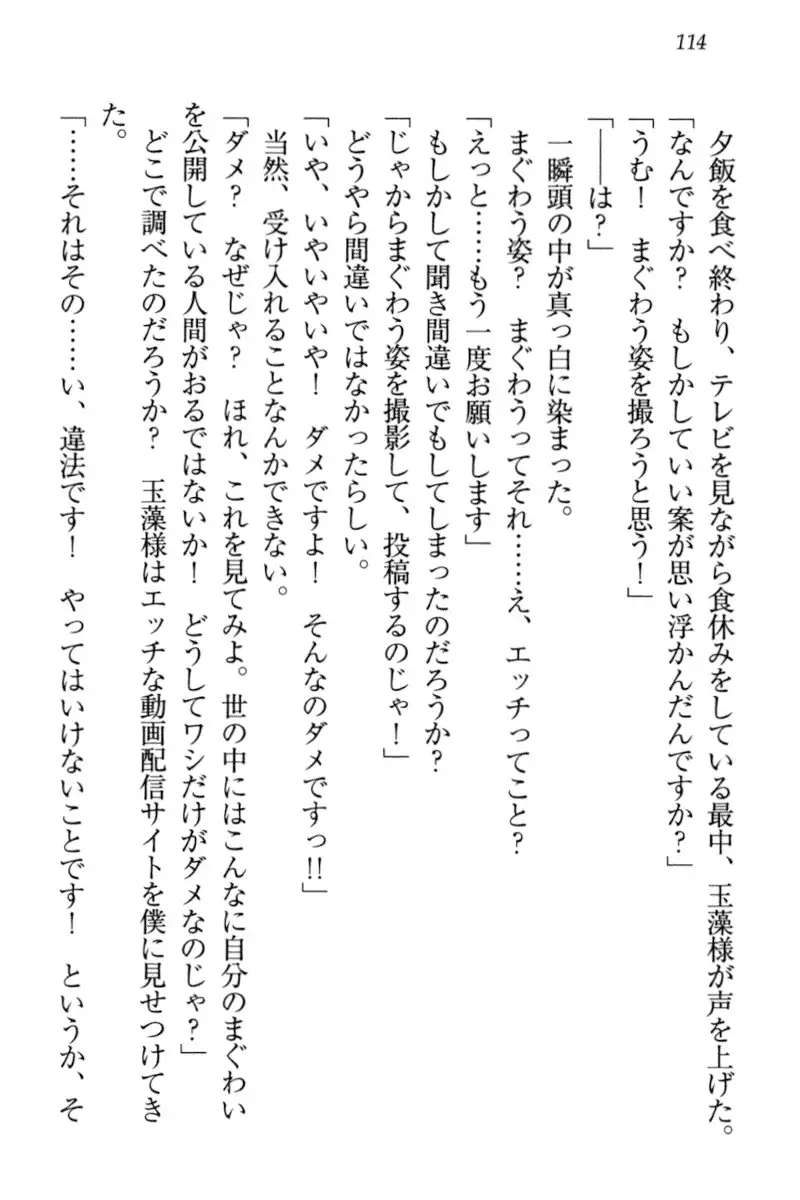 114
夕飯を食べ終わり、テレビを見ながら食休みをしている最中、玉藻様が声を上げた。
「なんですか？　もしかしていい案が思い浮かんだんですか？」
「うむ！　まぐわう姿を撮ろうと思う！」
「――は？」
一瞬頭の中が真っ白に染まった。
まぐわう姿？　まぐわうってそれ……え、エッチってこと？
「えっと……もう一度お願いします」
もしかして聞き間違いでもしてしまったのだろうか？
「じゃからまぐわう姿を撮影して、投稿するのじゃ！」
どうやら間違いではなかったらしい。
「いや、いやいやいや！　ダメですよ！　そんなのダメですっ!!」
当然、受け入れることなんかできない。
「ダメ？　なぜじゃ？　ほれ、これを見てみよ。世の中にはこんなに自分のまぐわい
を公開している人間がおるではないか！　どうしてワシだけがダメなのじゃ？」
どこで調べたのだろうか？　玉藻様はエッチな動画配信サイトを僕に見せつけてき
た。
「……それはその……い、違法です！　やってはいけないことです！　というか、そ